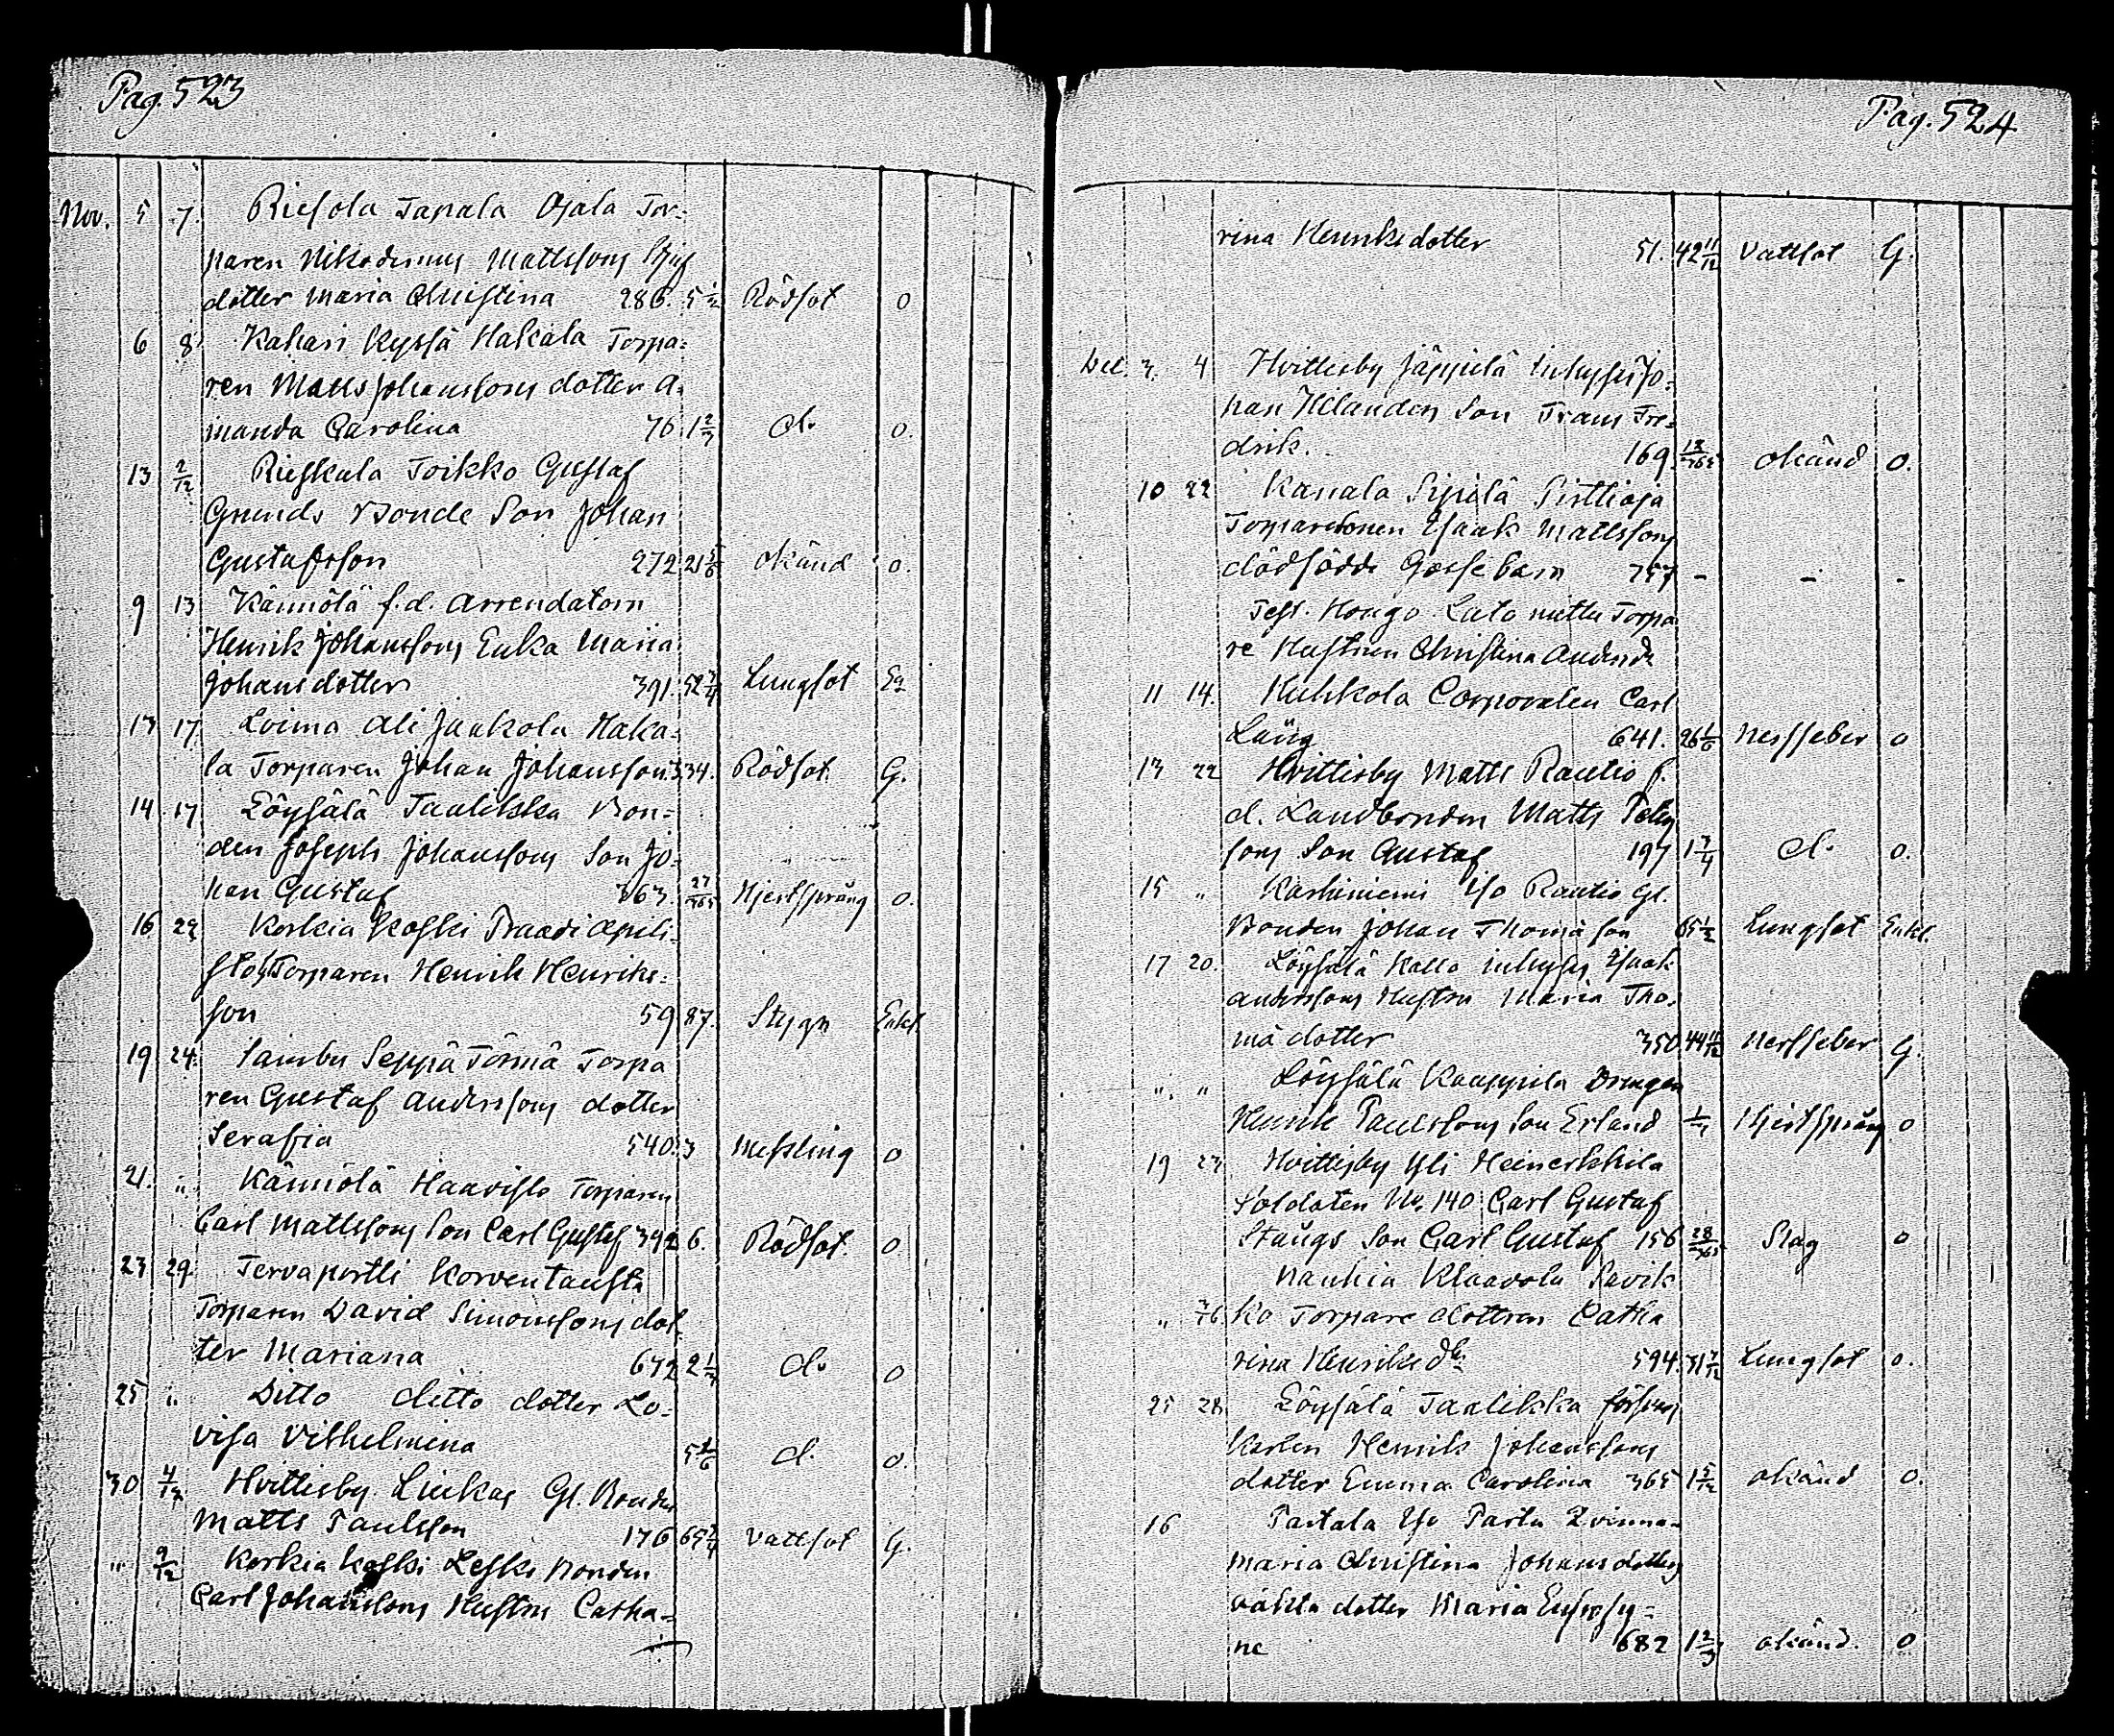 Pag. 523
Nov. 5 7. Riesola Tapala Ojala Tor-
paren Nikodemus Mattssons Stjuf
dotter Maria Christina 286. 5 1/2 Rödsot 0
6 8 Kahari Kyssä Hakala Torpa-
ren Matts Johanssons dotter A-
manda Carolina 76 1 2/3 do 0.
13 2/12 Rieskala Toikko Gustaf
Grunds Bonde Son Johan
Gustafsson 272 21 5/6 okänd 0.
9 13 Kännölä f.d. Arrendatorn
Henrik Johanssons Enka Maria
Johansdotter 391. 52 3/4 Lungsot En
13 17 Loima Ali Jaakola Haka-
la Torparen Johan Johansson 34. Rödsot. G.
14 17 Löysälä Taalikka Bon-
den Joseph Johanssons Son Jo-
han Gustaf 363. 27/365 Hjertsprång 0.
16 22 Korkia Koski
Torparen Henrik Henriks-
son 59 87. Stygn Enkl.
19 24. Sambu Seppä Törmä Torpa
ren Gustaf Anderssons dotter
Serafia 540. 3 Messling 0
21. " Kännölä Haavisto Torparen
Carl Mattssons Son Carl Gustaf 392 6. Rödsot. 0
23 29. Jervaportti Korventausta
Torparen David Simonssons dot-
ter Mariana 672 2 1/4 do 0
25 " Ditto ditto dotter Lo-
visa Vilhelmina 5 5/6 d. 0.
30 4/12 Hvittisby Liukas Gl. Bonden
Matts Paulsson 176 65 3/4 Vattsot G.
" 9/12 Korkia koski Leski Bonden
Carl Johanssons Hustru Catha-
Pag. 524
rina Henriksdotter 51. 42 11/12 Vattsot G.
Dec. 3. 4 Hvittisby Jäppilä Inhyses Jo-
han Hilandes Son Frans Fre-
drik. 169. 13/365 okänd 0.
10 22 Kanala Sipilä Sirttioja
Torparesonen Isaak Mattssons
dödfödde Gossebarn 757 - - -
Hongo Torpa
re Hustrun Christina Andersdr
11 14. Kuhkola Corporalen Carl
Läng 641. 26 1/6 Nerffeber 0
13 22 Hvittisby Matts Rautio f.
d. Landbonden Matts Peters
sons Son Gustaf 197 1 3/4 do 0.
15 " Karhiniemi Iso Rautio Gl.
Bonden Johan Thomä son 65 1/2 Lungsot Enkl.
17 20. Löysälä Kallo inhyses Isaak
Anderssons Hustru Maria Tho-
mä dotter 350 44 11/12 Nerffeber G.
" " Löysälä Kauppila Drängen
Henrik Paulssons Son Erland Hjertsprång 0
19 23 Hvittisby Yli Heinerkkila
Soldaten No. 140 Carl Gustaf
Stångs Son Carl Gustaf 156 28/365 Slag 0
Kauhia Klaavola Savik
" 26 ko Torpare dottren Catha
rina Henriks dr 594. 31 7/12 Lungsot 0.
25 28 Löysälä Taalikka försvars
karlen Henrik Johanssons
dotter Emma Carolina 365 1 5/12 okänd 0.
16 Pastala Iso Parta Qvinnan
Maria Christina Johansdotters
oäkta dotter Maria Eufrosy-
ne 682 1 2/3 okänd. 0